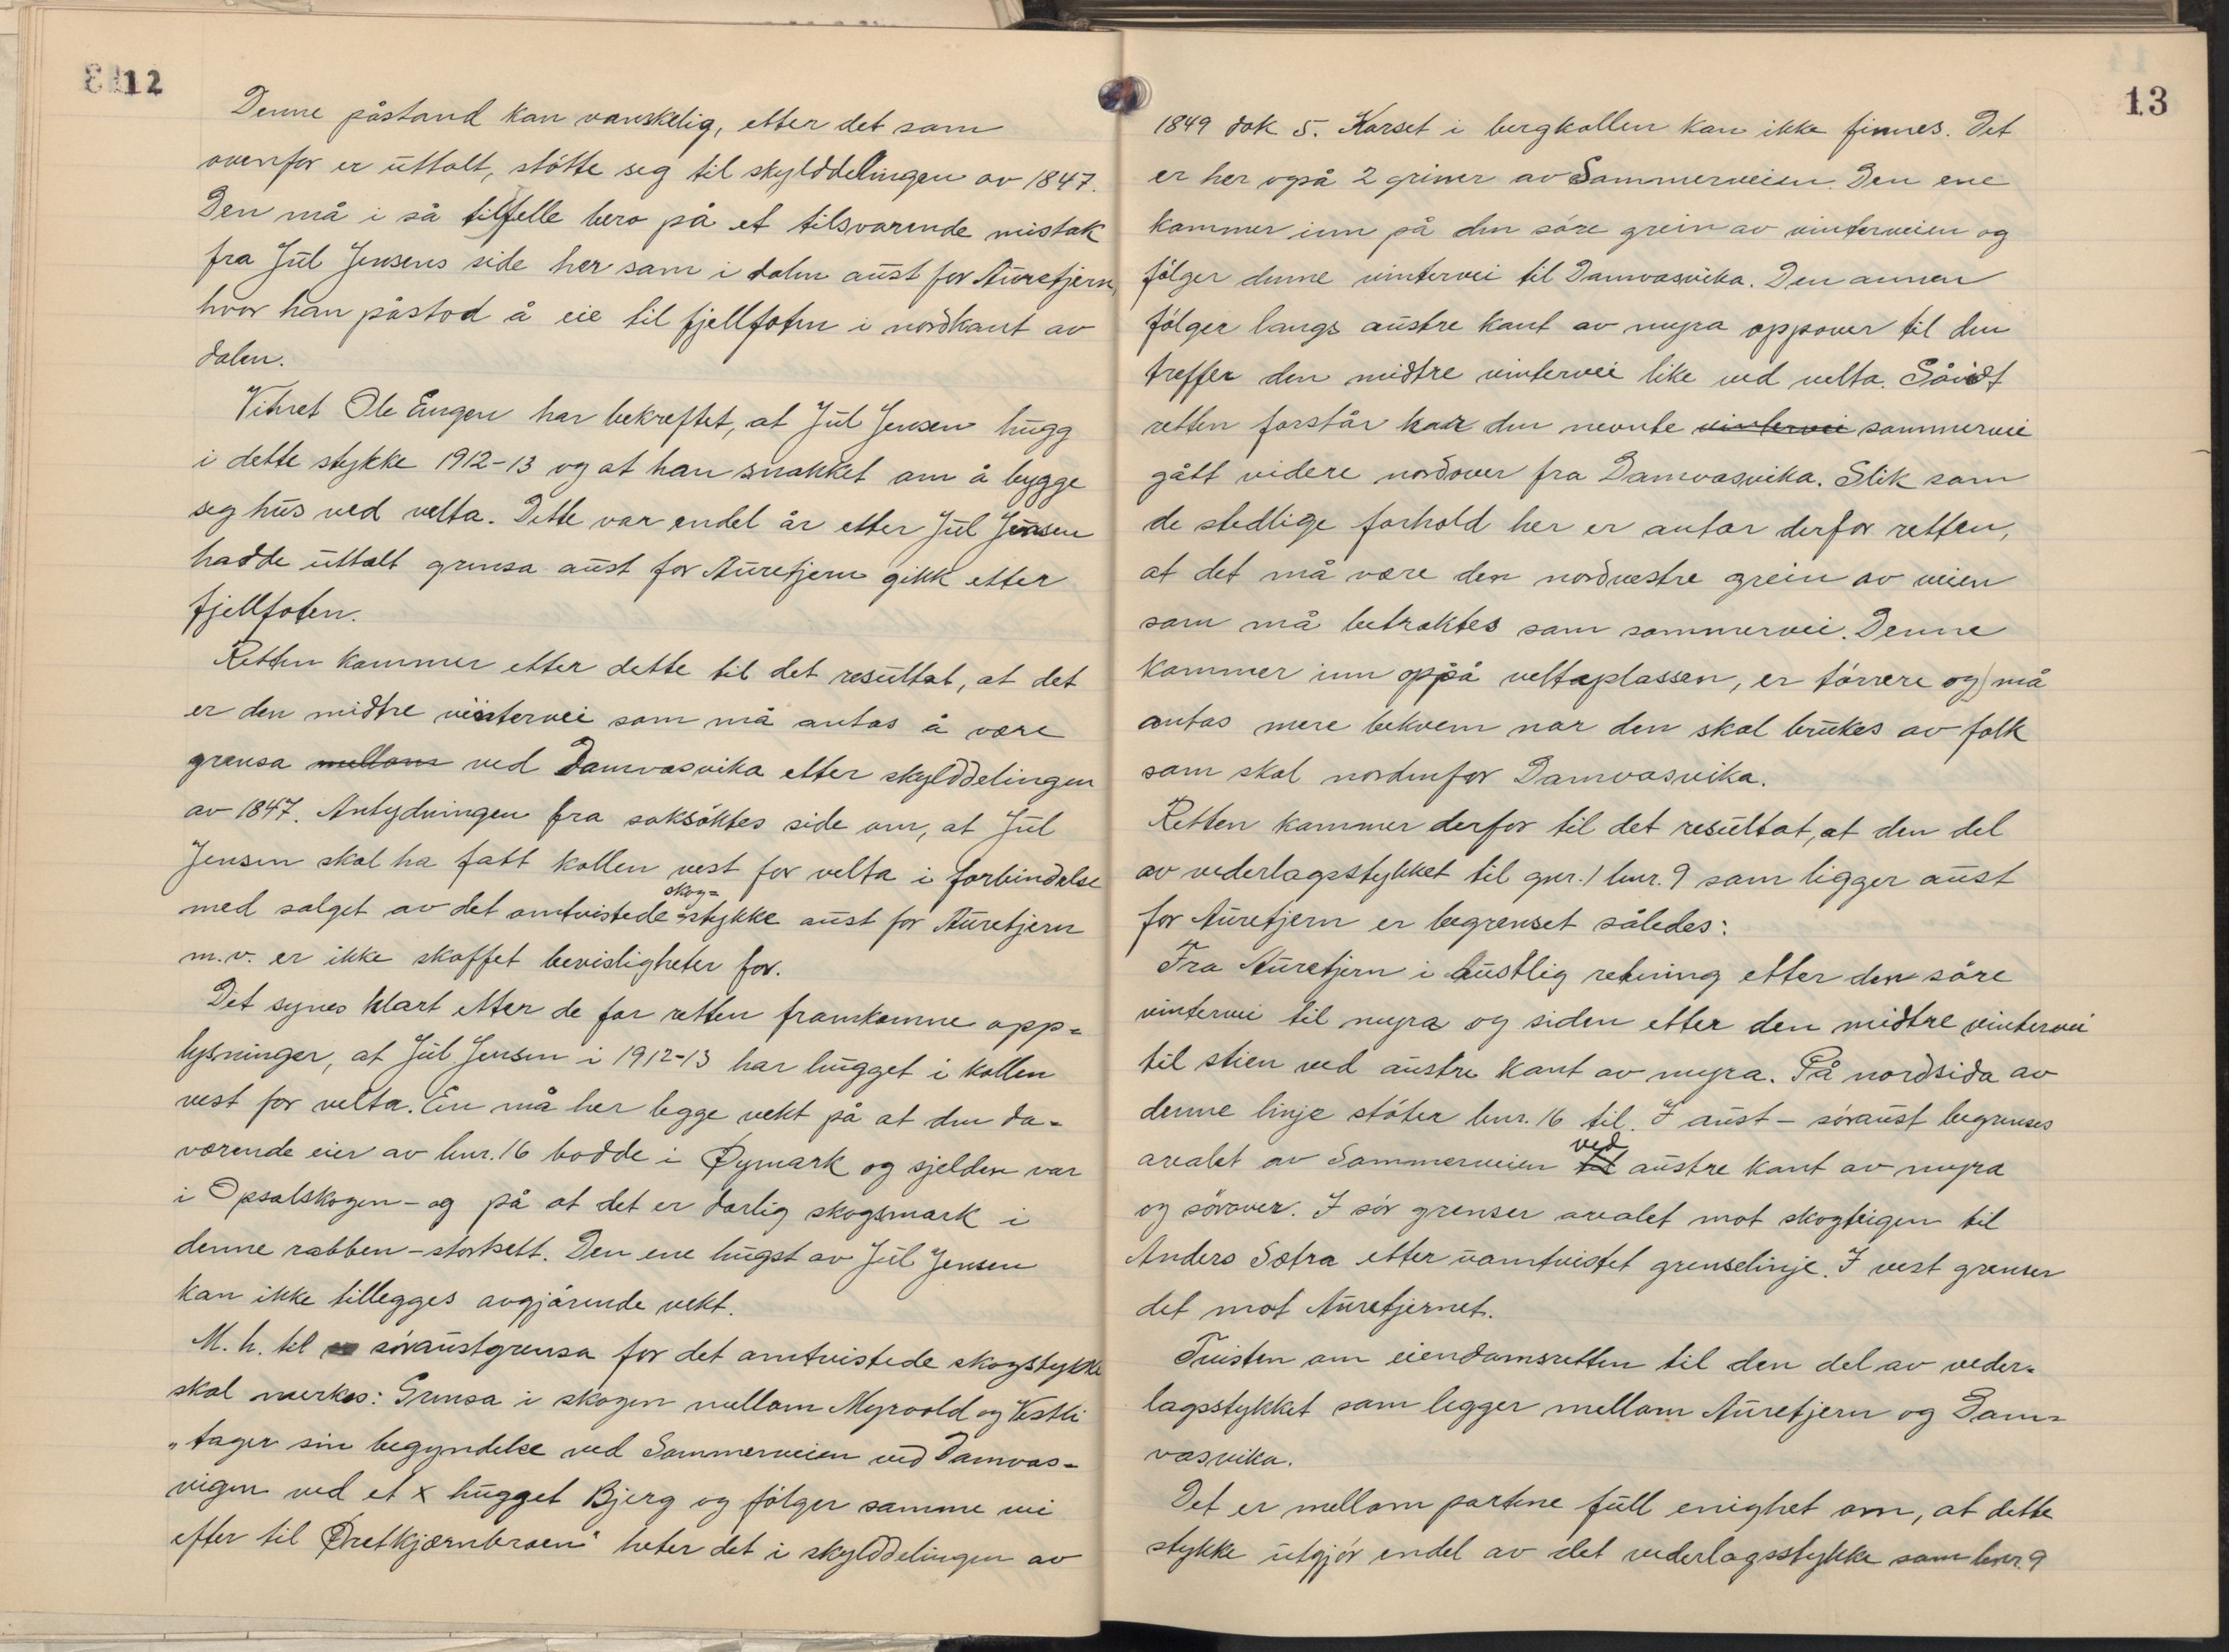 12
Denne påstand kan vanskelig, etter det som
ovenfor er uttalt, støtte seg til skylddelingen av 1847.
Den må i så tilfelle bero på et tilsvarende mistak
fra Jul Jensens side her som i dalen aust for Auretjern,
hvor han påstod å eie til fjellfoten i nordkant av
dalen.
Vitnet Ole Engen har bekreftet, at Jul Jensen hugg
i dette stykke 1912-13 og at han snakket om å bygge
seg hus ved velta. Dette var endel år etter Jul Jensen
hadde uttalt grensa aust for Auretjern gikk etter
fjellfoten.
Retten kommer etter dette til det resultat, at det
er den midtre vintervei som må antas å være
grensa mellom ved Damvasvika etter skylddelingen
av 1847. Antydningen fra saksøktes side om, at Jul
Jensen skal ha fått kollen vest for velta i forbindelse
med salget av det omtvistede skog=stykke aust for Auretjern
m.v. er ikke skaffet bevisligheter for.
Det synes klart etter de for retten framkomne opp=
lysninger, at Jul Jensen i 1912-13 har hugget i kollen
vest for velta. En må her legge vekt på at den da-
værende eier av bnr. 16 bodde i Øymark og sjelden var
i Opsalskogen - og på at det er dårlig skogsmark i
denne rabben - stortsett. Den ene hugst av Jul Jensen
kan ikke tillegges avgjørende vekt.
M. h. til søraustgrensa for det omtvistede skogstykke
skal merkes: Grensa i skogen mellom Myrvold og Vestli
„tager sin begyndelse ved Sommerveien ved Damvas-
vigen ved et x hugget Bjerg og følger samme vei
efter til Øretkjærnbroen" heter det i skylddelingen av
13
1849 dok 5. Korset i bergkollen kan ikke finnes. Det
er her også 2 griner av Sommerveien. Den ene
kommer inn på den søre grein av vinterveien og
følger denne vintervei til Damvasvika. Den annen
følger langs austre kant av myra oppover til den
treffer den midtre vintervei like ved velta. Såvidt
retten forstår har den nevnte vintervei sommervei
gått videre nordover fra Damvasvika. Slik som
de stedlige forhold her er antar derfor retten,
at det må være den nordvestre grein av veien
som må betraktes som sommervei. Denne
kommer inn oppå veltaplassen, er tørrere og må
antas mere bekvem når den skal brukes av folk
som skal nordenfor Damvasvika.
Retten kommer derfor til det resultat, at den del
av vederlagsstykket til gnr. 1 bnr. 9 som ligger aust
for Auretjern er begrenset således:
Fra Auretjern i austlig retning etter den søre
vintervei til myra og siden etter den midtre vintervei
til stien ved austre kant av myra. På nordsida av
denne linje støter bnr. 16 til. I aust - søraust begrenses
arealet av Sommerveien til ved austre kant av myra
og sørover. I sør grenser arealet mot skogteigen til
Anders Sætra etter uomtvistet grenselinje. I vest grenser
det mot Auretjernet.
Tvisten om eiendomsretten til den del av veder=
lagsstykket som legger mellom Auretjern og Dam=
vasvika.
Det er mellom partene full enighet om, at dette
stykke utgjør endel av det vederlagsstykke som bnr. 9